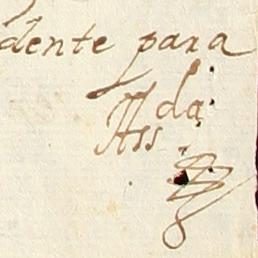 dente para
da
Ass